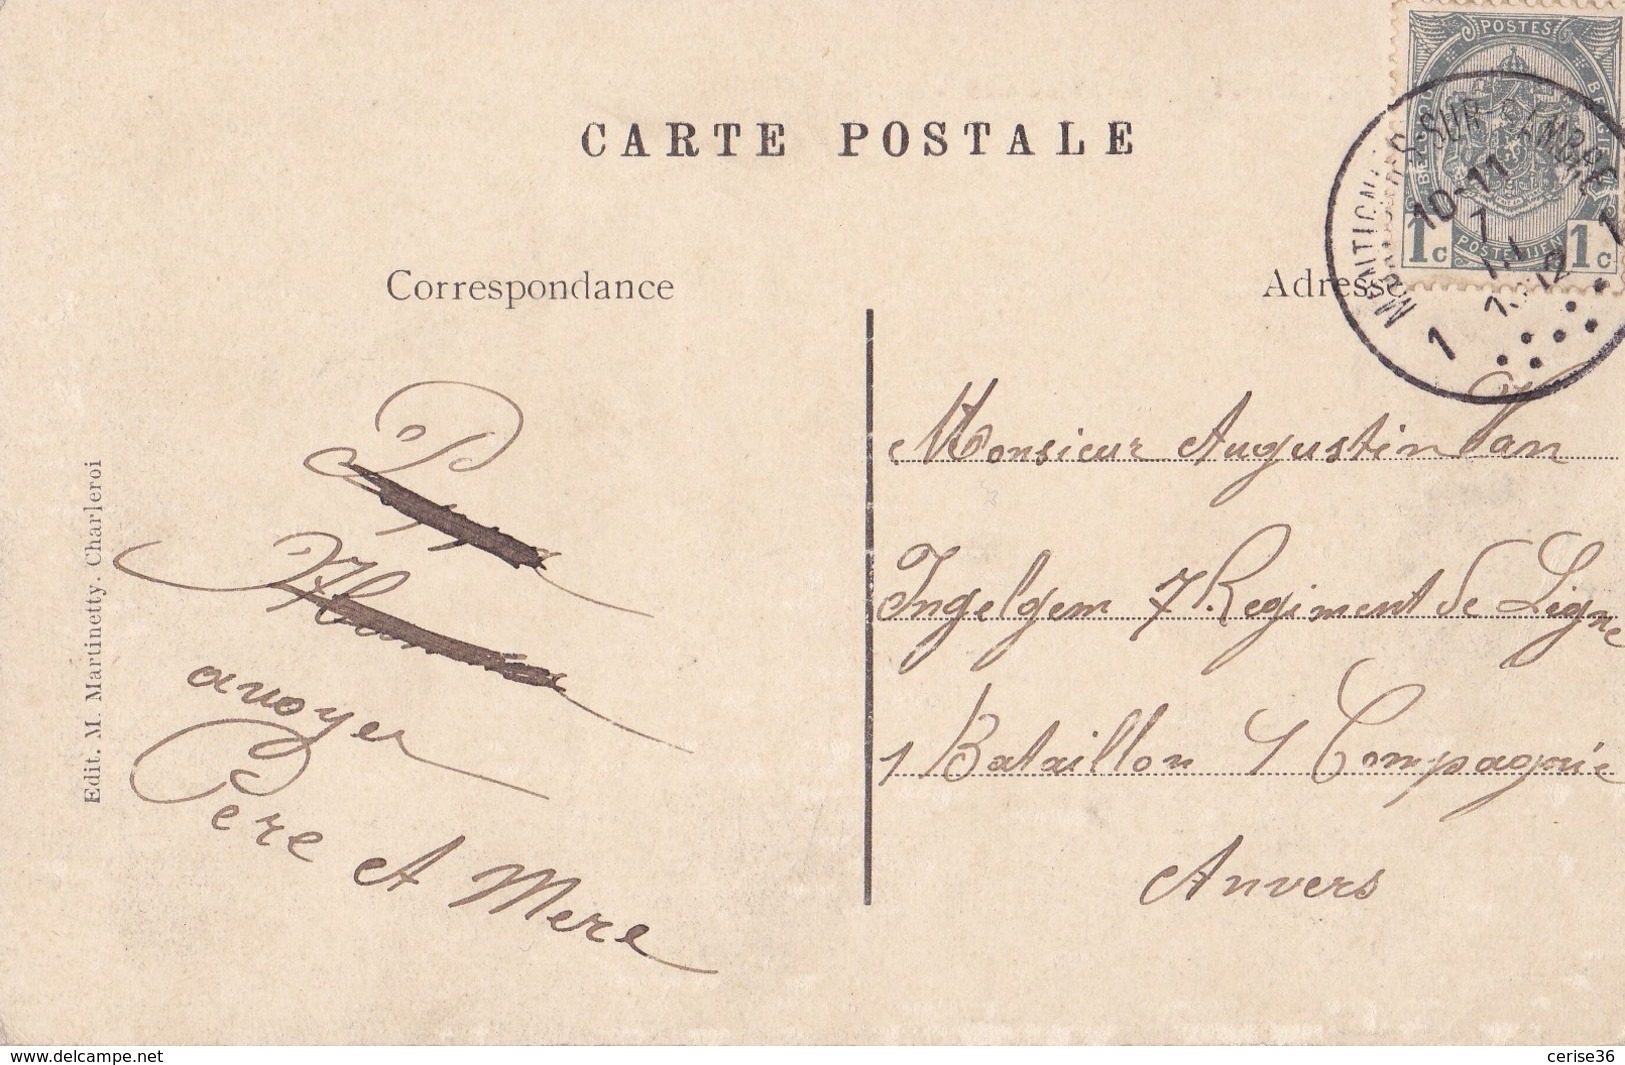 CARTE POSTALE
POSTES
1c POSTERIJEN 1c
SUR SAMBRE
10-11
7
1
1
Correspondance
Adresse
avoyer
Pere et Mere
Monsieur Augustin Van
Ingelgem 7 Regiment de Ligne
1 Bataillon 4 Compagnie
Anvers
Edit. M. Martinetty. Charleroi
www.delcampe.net
cerise36